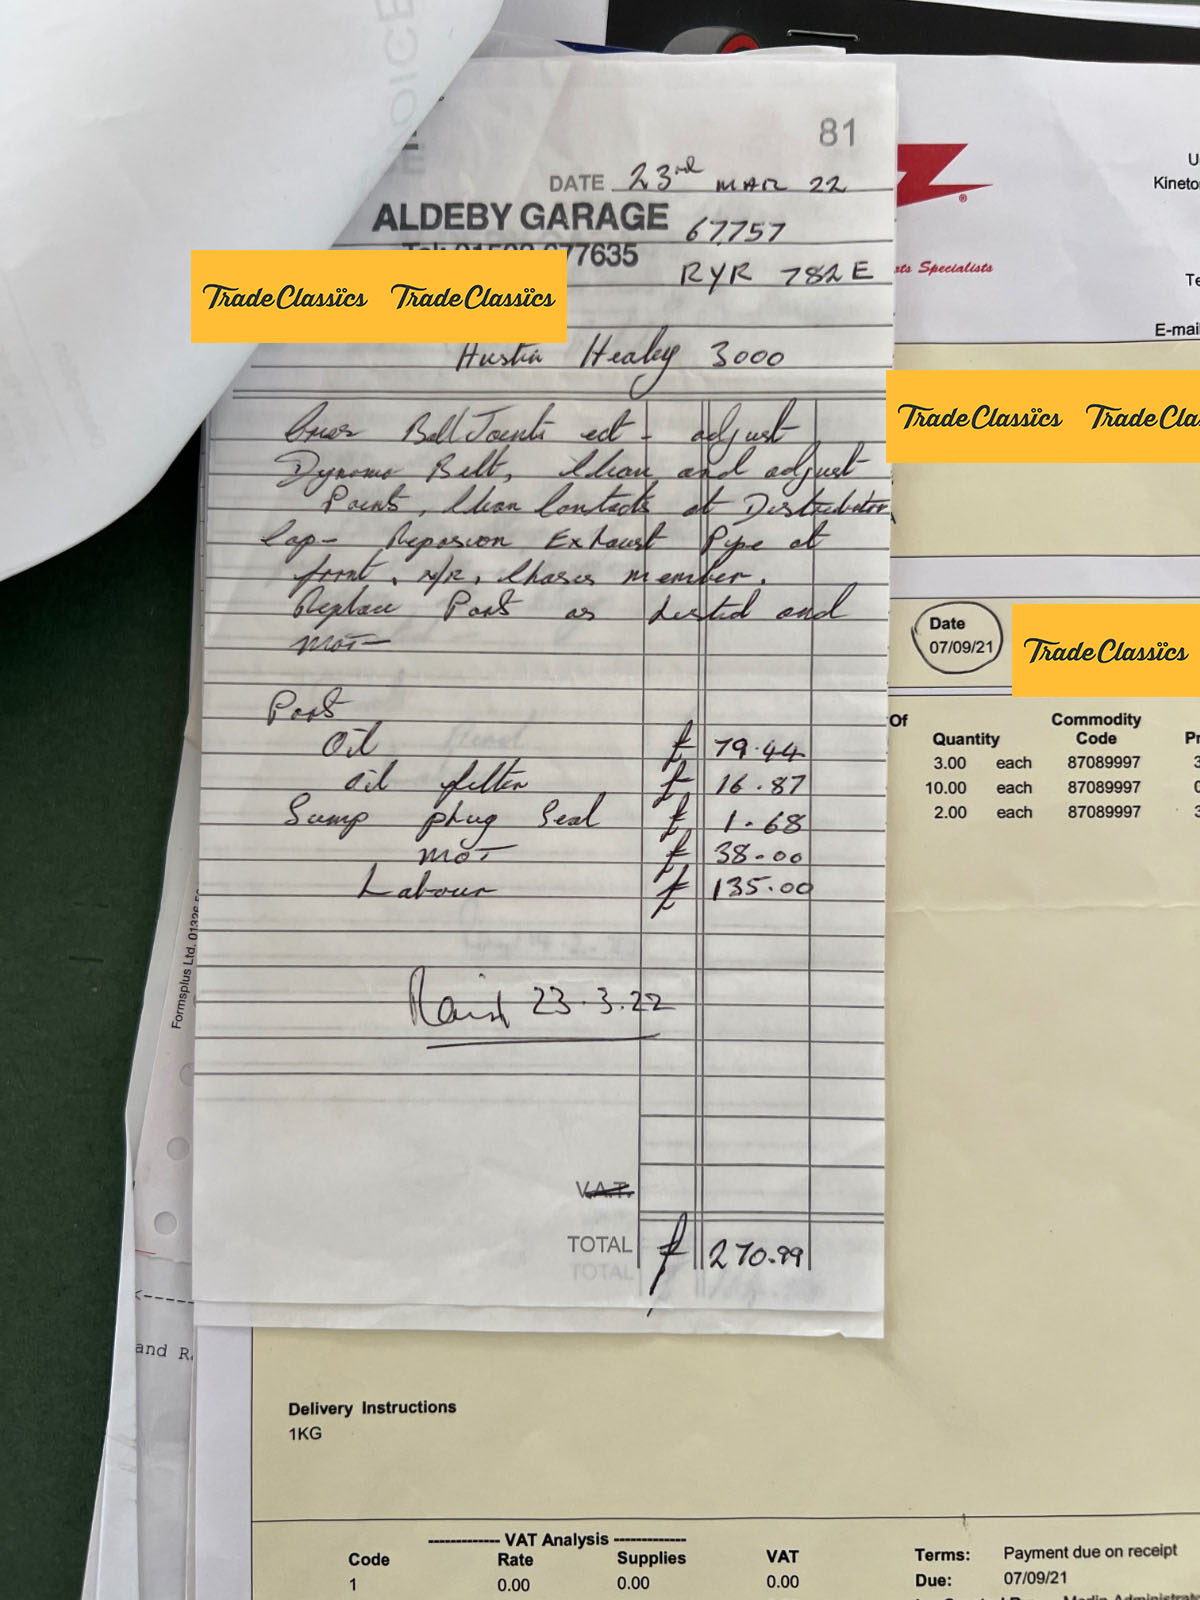 81
DATE 23rd MAR 22
ALDEBY GARAGE 67757
77635
RYR 782E
TradeClassics TradeClassics
Austin Healey 3000
Ball Joints ect - adjust
Dynamo Belt, Clean and adjust
Points, Clean Contacts at Distributor
Cap - Reposion Exhaust Pipe at
front, N/R, Chasis member.
Replace Parts as Listed and
MOT -
Parts
Oil £ 79.44
Oil filter £ 16.87
Sump plug Seal £ 1.68
MOT £ 38.00
Labour £ 135.00
Paid 23.3.22
V.A.T.
TOTAL £ 270.99
TOTAL
Formsplus Ltd. 01326
and R
OICE
U
Kineto
®
Specialists
Te
E-mail
TradeClassics TradeCla
Date
07/09/21
TradeClassics
Of Quantity Commodity Code Pr
3.00 each 87089997 3
10.00 each 87089997 0
2.00 each 87089997 3
Delivery Instructions
1KG
VAT Analysis
Code Rate Supplies VAT
1 0.00 0.00 0.00
Terms: Payment due on receipt
Due: 07/09/21